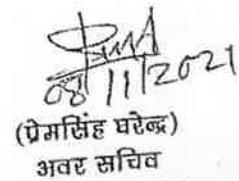 08/11/2021
(प्रेमसिंह घरेन्द्र)
अवर सचिव